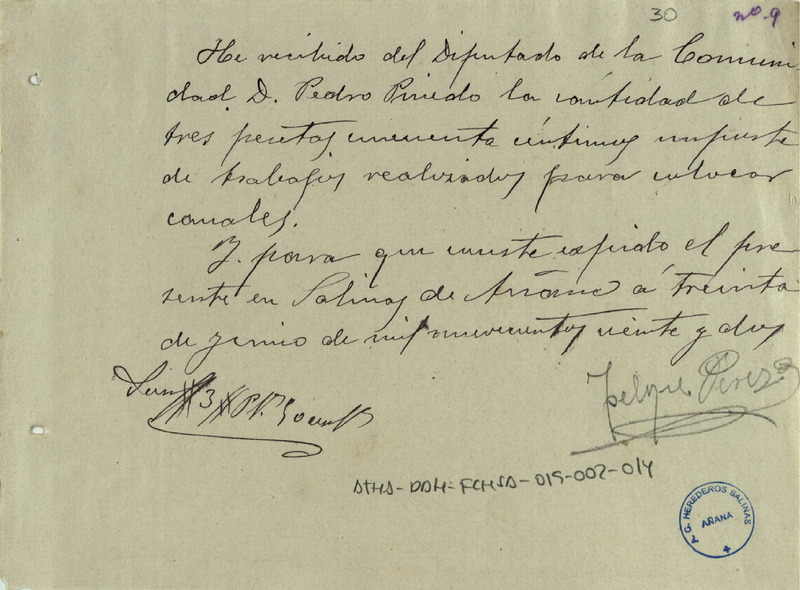 30 nº 9
He recibido del Diputado de la Comuni
dad, D. Pedro Pinedo la cantidad de
tres pesetas cincuenta céntimos importe
de trabajos realizados para colocar
canales.
Y para que conste expido el pre
sente en Salinas de Añana á treinta
de Junio de mil novecientos veinte y dos
Son # 3 # Pts. 50 cents
Felipe Perez
ATHA-DAH-FCHSA-019-002-014
R. G. HEREDEROS SALINAS
AÑANA